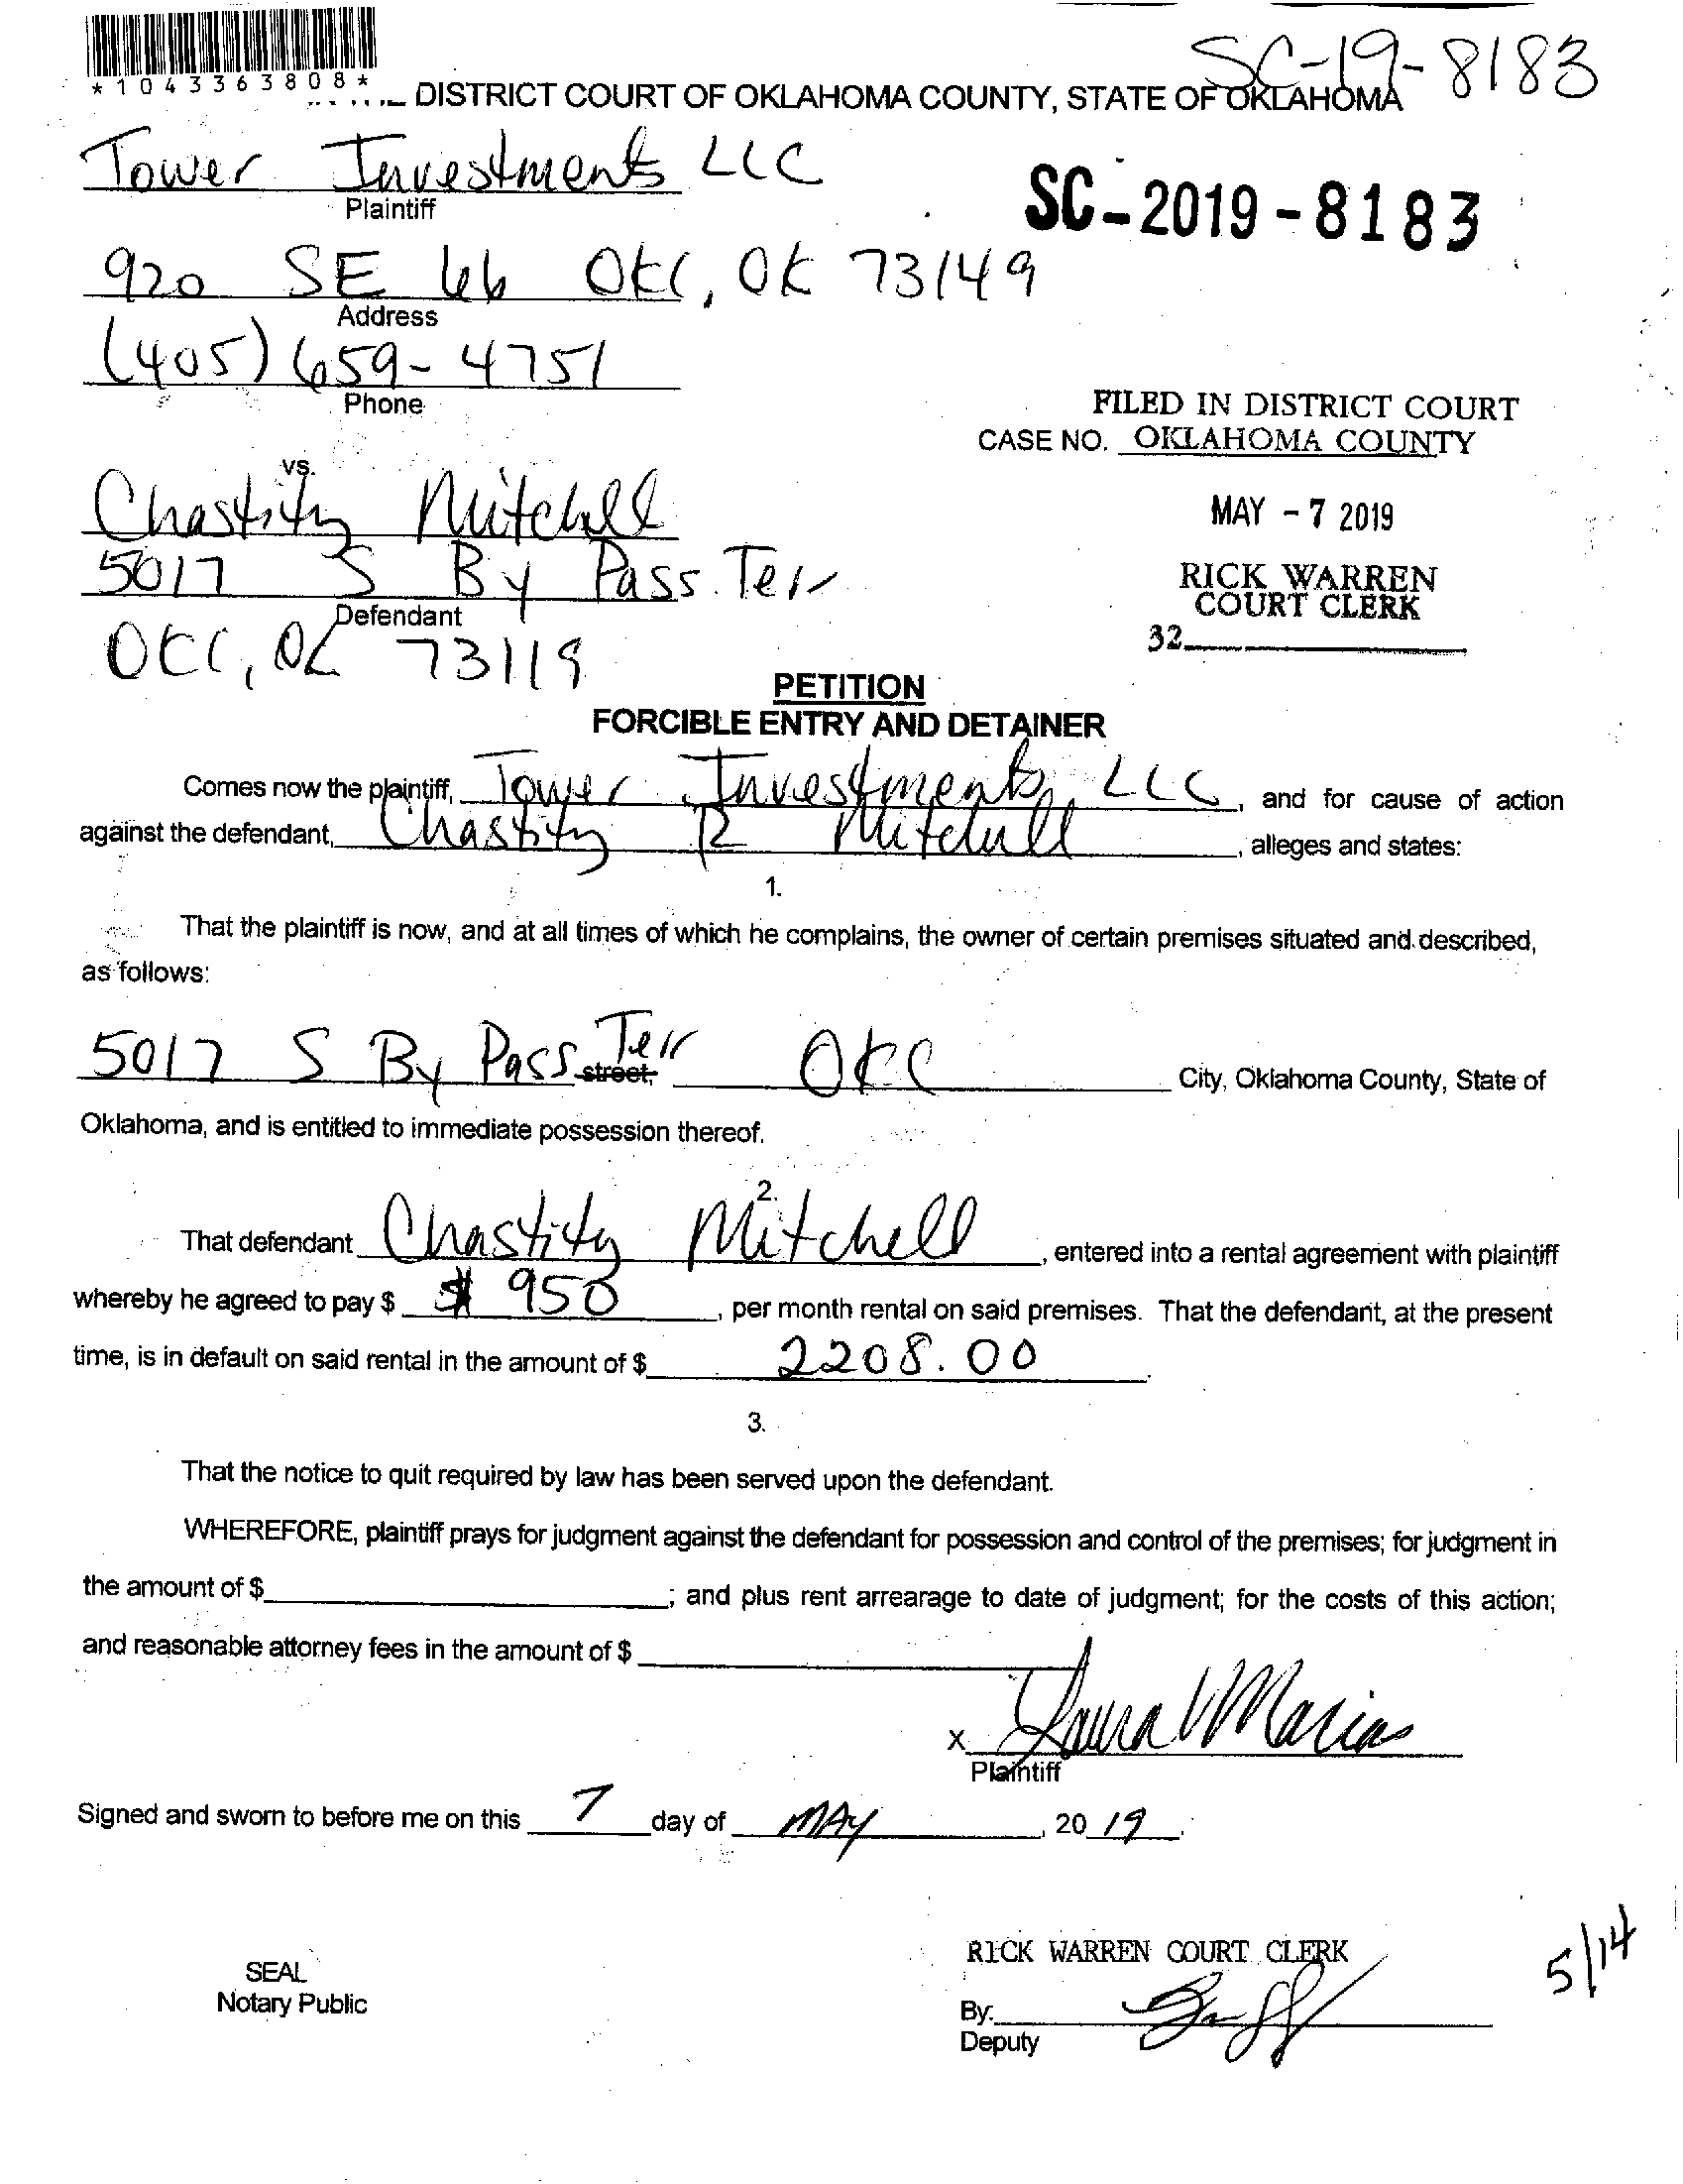 *1043363808*
SC-19-8183
DISTRICT COURT OF OKLAHOMA COUNTY, STATE OF OKLAHOMA
Tower Investments LLC
Plaintiff
SC-2019-8183
920 SE 66 OKC, OK 73149
Address
(405) 659-4751
Phone
FILED IN DISTRICT COURT
CASE NO. OKLAHOMA COUNTY
vs.
Chastity Mitchell
MAY - 7 2019
5017 S By Pass Terr
Defendant
RICK WARREN
COURT CLERK
OKC, OK 73119
32
PETITION
FORCIBLE ENTRY AND DETAINER
Comes now the plaintiff, Tower Investments, LLC, and for cause of action
against the defendant, Chastity R Mitchell, alleges and states:
1.
That the plaintiff is now, and at all times of which he complains, the owner of certain premises situated and described,
as follows:
5017 S By Pass Terr street, OKC City, Oklahoma County, State of
Oklahoma, and is entitled to immediate possession thereof.
2.
That defendant Chastity Mitchell, entered into a rental agreement with plaintiff
whereby he agreed to pay $ $ 950, per month rental on said premises. That the defendant, at the present
time, is in default on said rental in the amount of $ 2208.00.
3.
That the notice to quit required by law has been served upon the defendant.
WHEREFORE, plaintiff prays for judgment against the defendant for possession and control of the premises; for judgment in
the amount of $ ; and plus rent arrearage to date of judgment; for the costs of this action;
and reasonable attorney fees in the amount of $
X Laura Marias
Plaintiff
Signed and sworn to before me on this 7 day of MAY, 20 19.
5/14
RICK WARREN COURT CLERK
SEAL
Notary Public
By:
Deputy